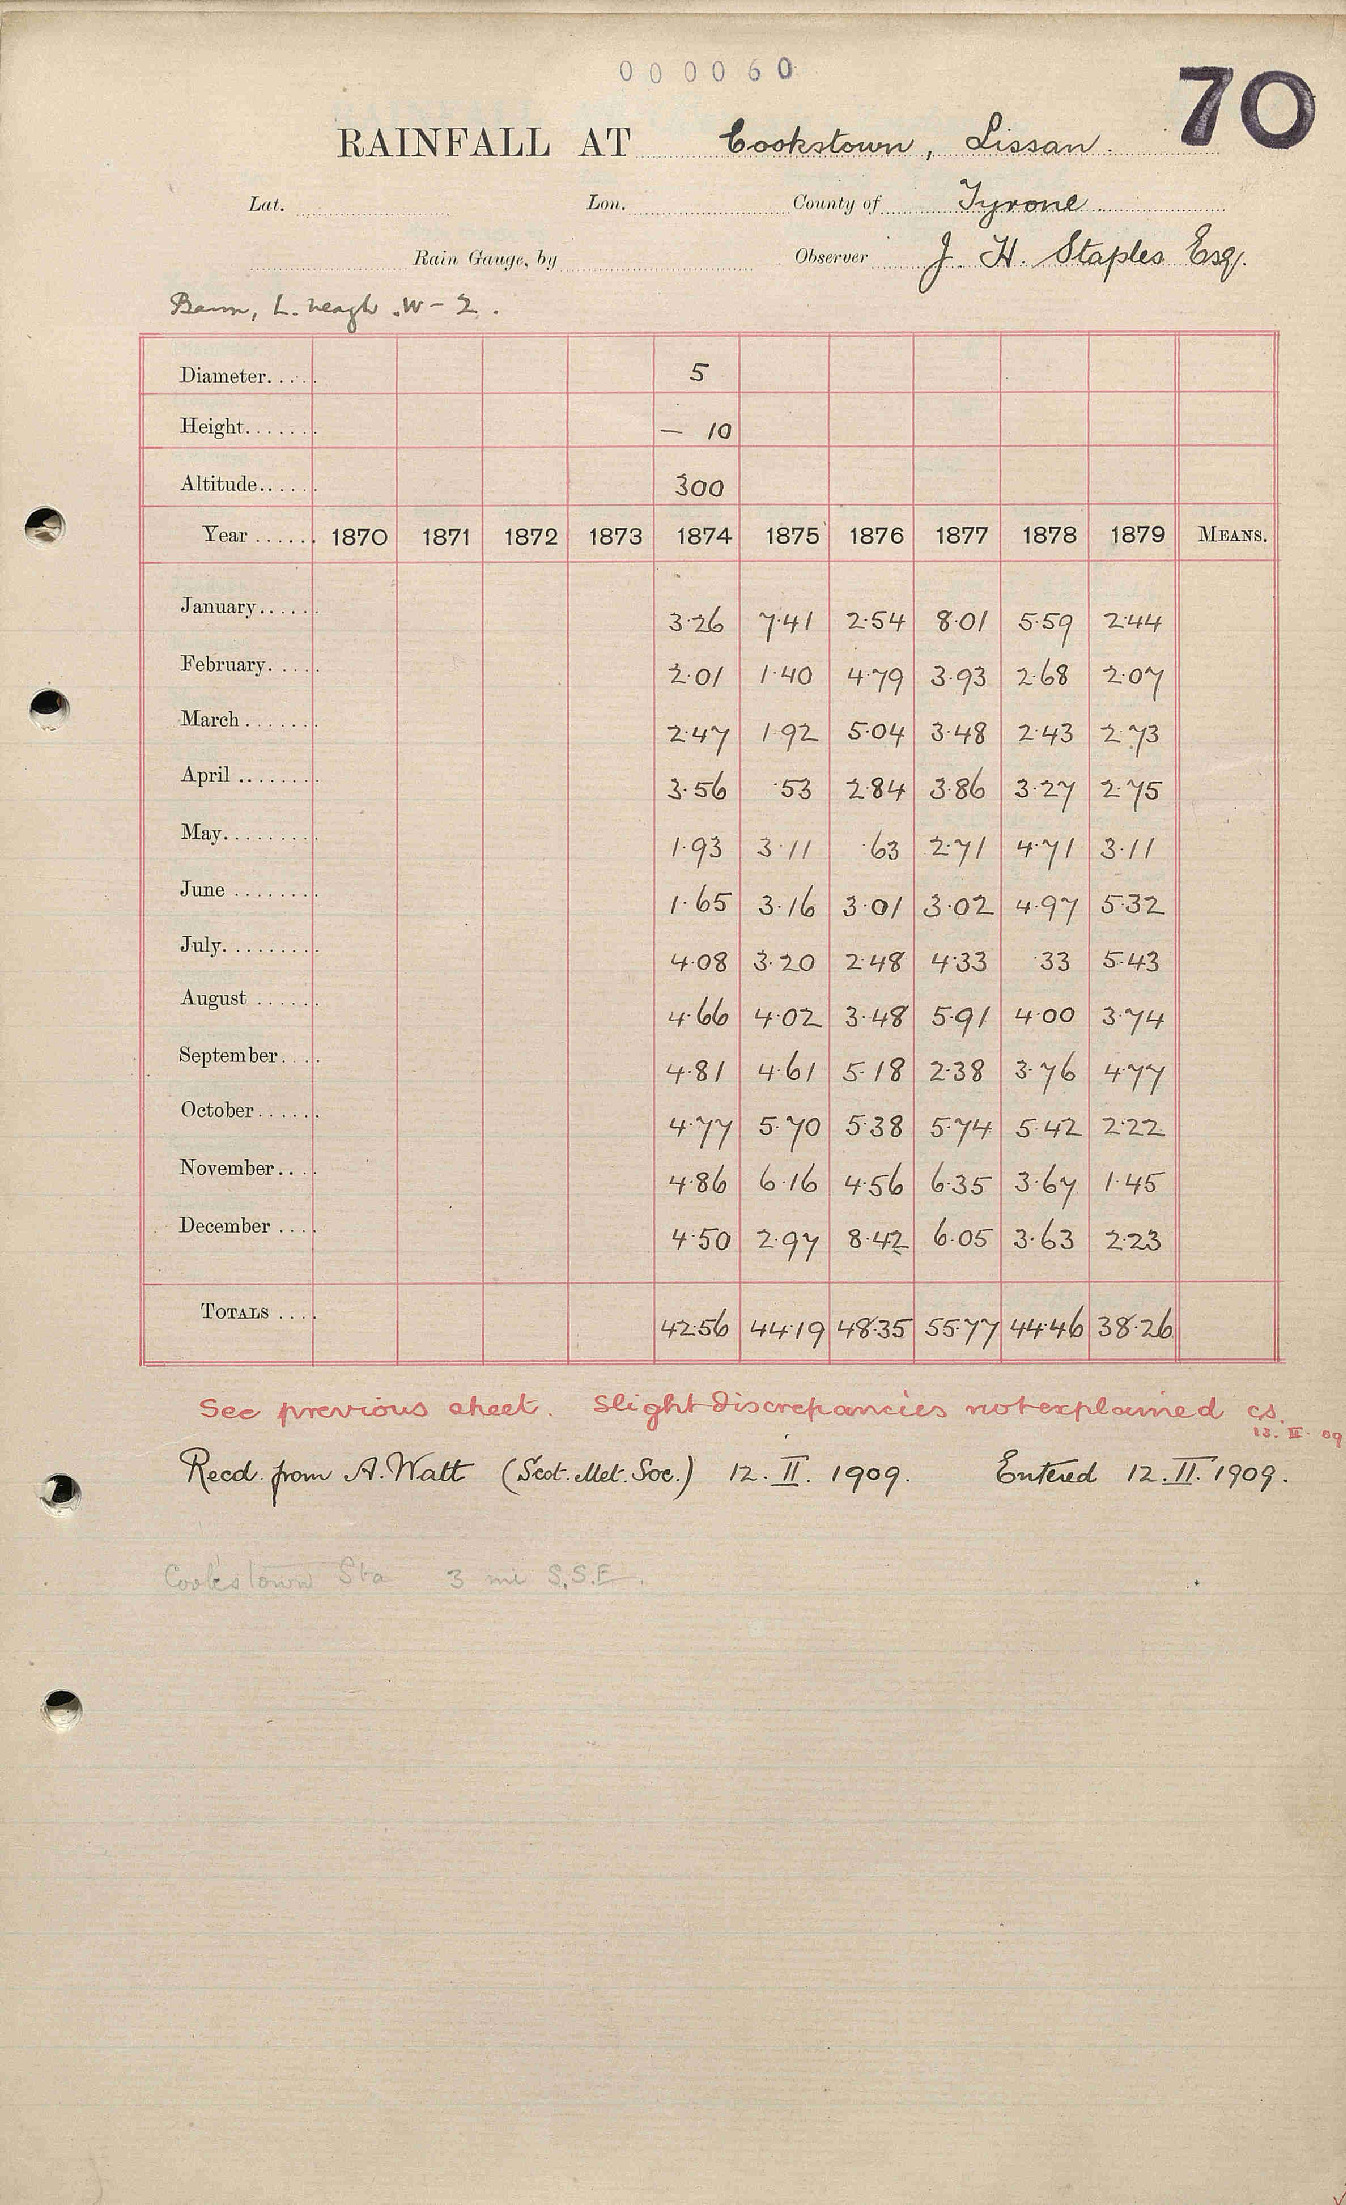 000060
70
RAINFALL AT Cookstown, Lissan.
Lat. Lon. County of Tyrone
Rain Gauge, by Observer J. H. Staples Esq.
Bann, L. Neagh .W - 2.
Diameter...... 5
Height....... — 10
Altitude...... 300
Year ...... 1870 1871 1872 1873 1874 1875 1876 1877 1878 1879 MEANS.
January...... 3.26 7.41 2.54 8.01 5.59 2.44
February..... 2.01 1.40 4.79 3.93 2.68 2.07
March....... 2.47 1.92 5.04 3.48 2.43 2.73
April ........ 3.56 .53 2.84 3.86 3.27 2.75
May......... 1.93 3.11 .63 2.71 4.71 3.11
June ........ 1.65 3.16 3.01 3.02 4.97 5.32
July......... 4.08 3.20 2.48 4.33 .33 5.43
August ...... 4.66 4.02 3.48 5.91 4.00 3.74
September.... 4.81 4.61 5.18 2.38 3.76 4.77
October...... 4.77 5.70 5.38 5.74 5.42 2.22
November.... 4.86 6.16 4.56 6.35 3.67 1.45
December .... 4.50 2.97 8.42 6.05 3.63 2.23
TOTALS .... 42.56 44.19 48.35 55.77 44.46 38.26
See previous sheet. Slight discrepancies not explained cs.
13. II. 09
Recd. from A. Watt (Scot. Met. Soc.) 12. II. 1909. Entered 12. II. 1909.
Cookstown Sta 3 mi S.S.E.